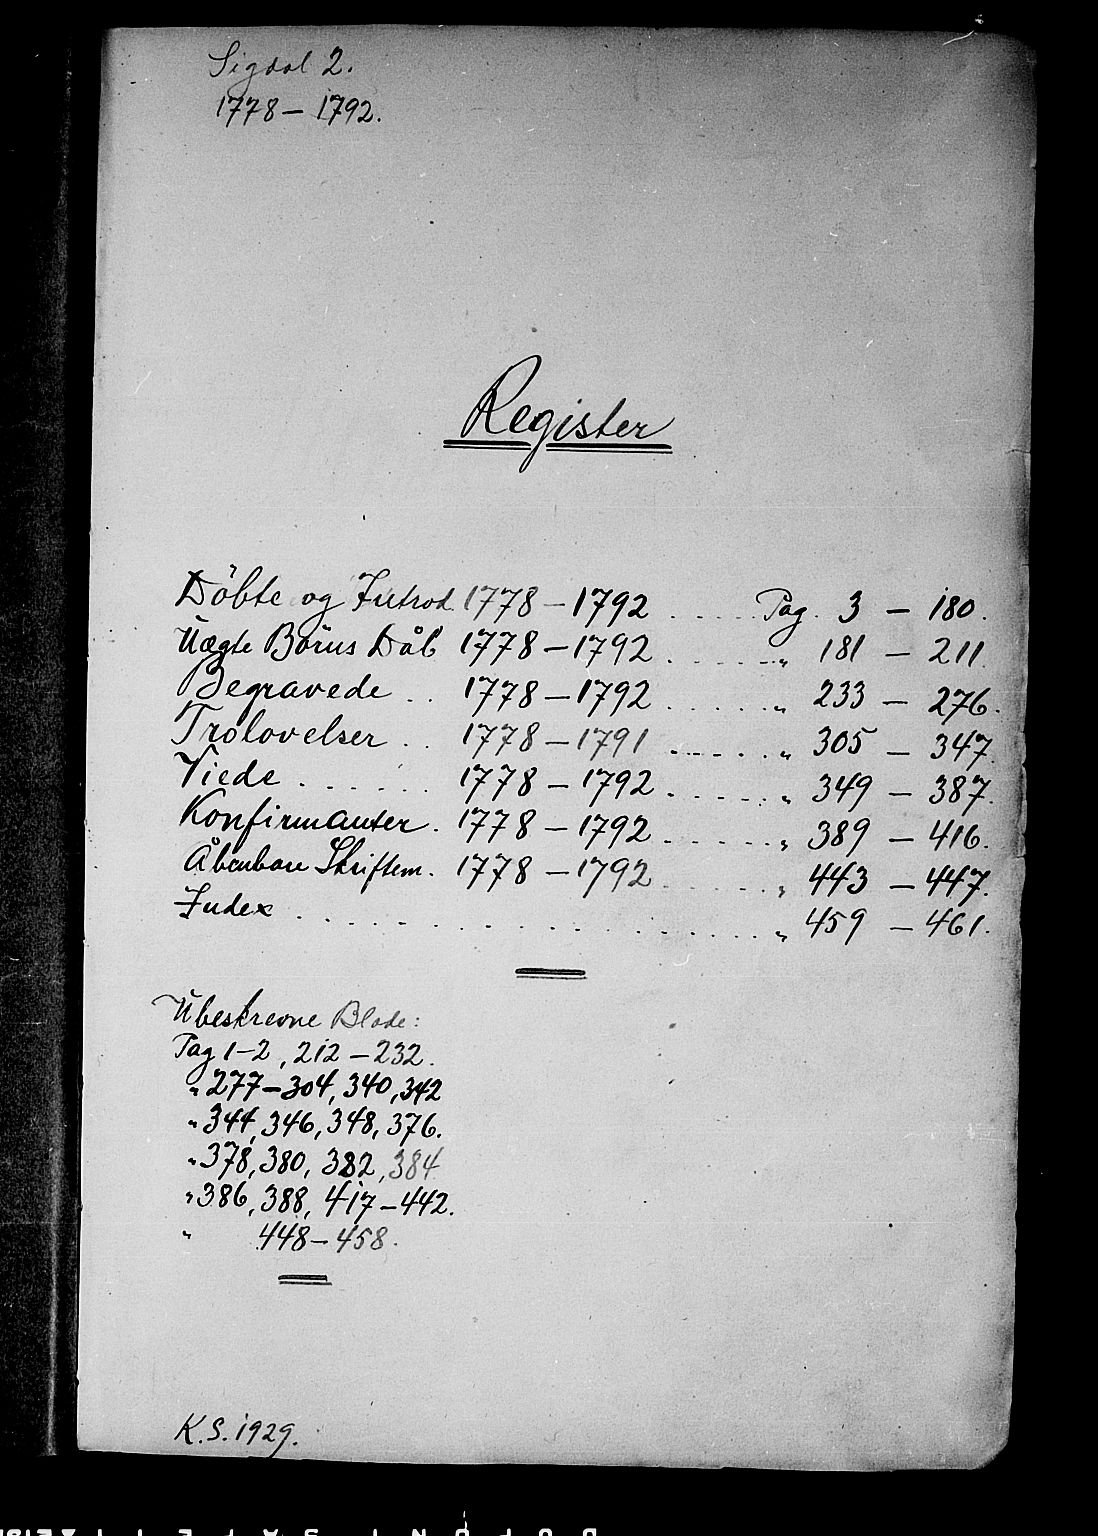 Sigdal 2.
1778 – 1792.
Register
Döbte og Introd. 1778 – 1792 ..... Pag. 3 – 180.
Uægte Börns Dåb 1778 – 1792 ..... " 181 – 211.
Begravede .. 1778 – 1792 ..... " 233 – 276.
Trolovelser .. 1778 – 1791 ..... " 305 – 347.
Viede ...... 1778 – 1792 ..... " 349 – 387.
Konfirmanter . 1778 – 1792 ..... " 389 – 416.
Åbenbare Skriftem. 1778 – 1792 ..... " 443 – 447.
Index ............ " 459 – 461.
Ubeskrevne Blade:
Pag 1–2, 212 – 232.
" 277 – 304, 340, 342
" 344, 346, 348, 376.
" 378, 380, 382, 384
" 386, 388, 417 – 442.
" 448 – 458.
K.S. 1929.